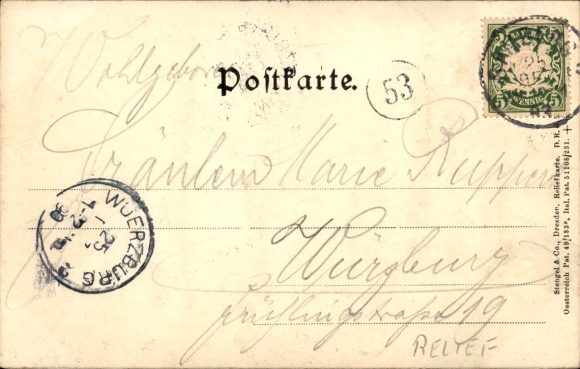 Wohlgeboren
Postkarte.
53
5 PFENNIG 5
25
Fräulein Marie Ruppert
WUERZBURG 2
25
Würzburg
Frühlingstraße 19
RELIEF
Stengel & Co., Dresden, Reliefkarte. D. R.
Oesterreich Pat. 49/1839, Ital. Pat. 51768/231.